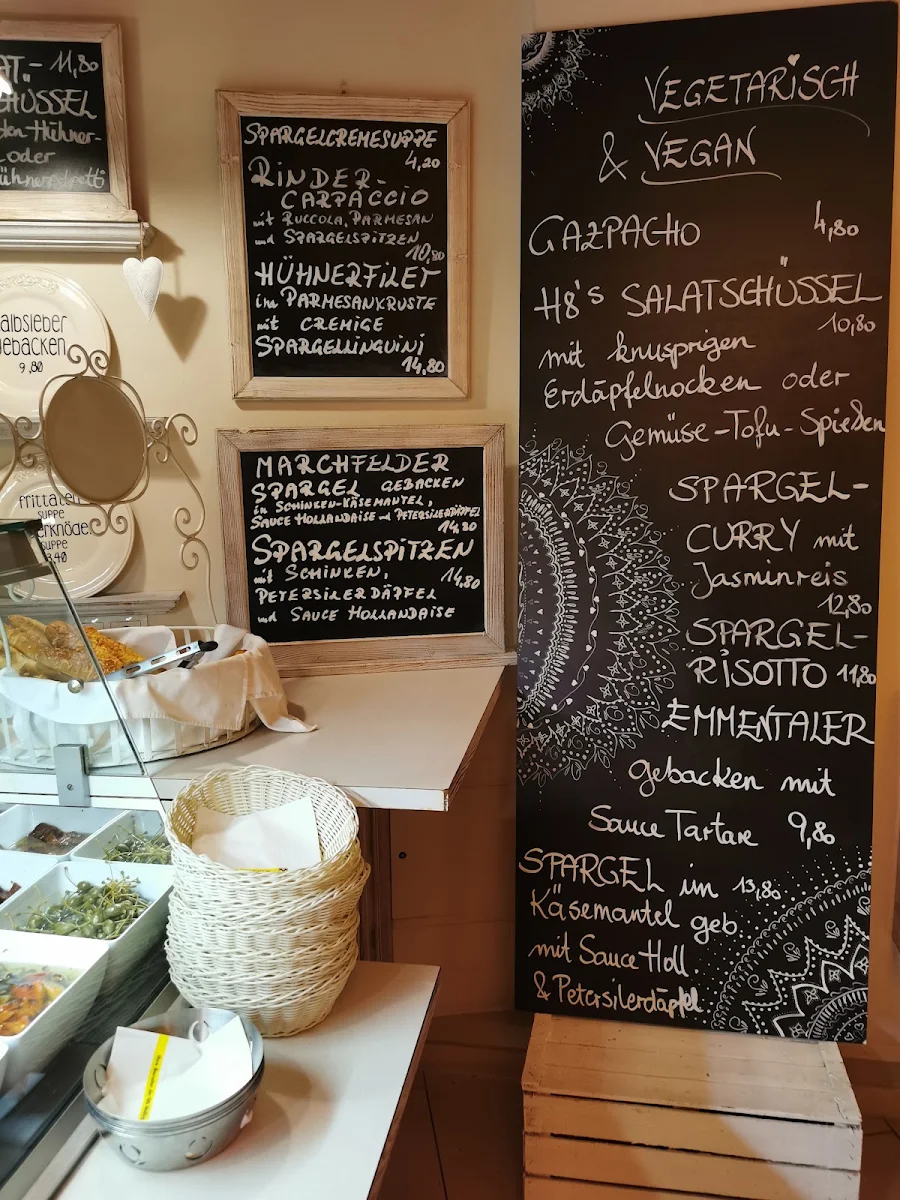 AT - 11,80
HÜSSEL
den-Hühner-
oder
ühnerspetti
albsleber
gebacken
9,80
frittaten
suppe
erknödel
suppe
3,40
SPARGELCREMESUPPE
4,20
RINDER-
CARPACCIO
mit RUCCOLA, PARMESAN
und SPARGELSPITZEN
10,80
HÜHNERFILET
im PARMESANKRUSTE
mit CREMIGE
SPARGELLINGUINI
14,80
MARCHFELDER
SPARGEL GEBACKEN
in SCHINKEN-KÄSEMANTEL,
SAUCE HOLLANDAISE und PETERSILERDÄPFEL
14,80
SPARGELSPITZEN
mit SCHINKEN, 14,80
PETERSILERDÄPFEL
und SAUCE HOLLANDAISE
VEGETARISCH
& VEGAN
GAZPACHO 4,80
H8's SALATSCHÜSSEL
10,80
mit knusprigen
Erdäpfelnocken oder
Gemüse-Tofu-Spießen
SPARGEL-
CURRY mit
Jasminreis
12,80
SPARGEL-
RISOTTO 11,80
EMMENTALER
gebacken mit
Sauce Tartare 9,80
SPARGEL im 13,80
Käsemantel geb.
mit Sauce Holl.
& Petersilerdäpfel